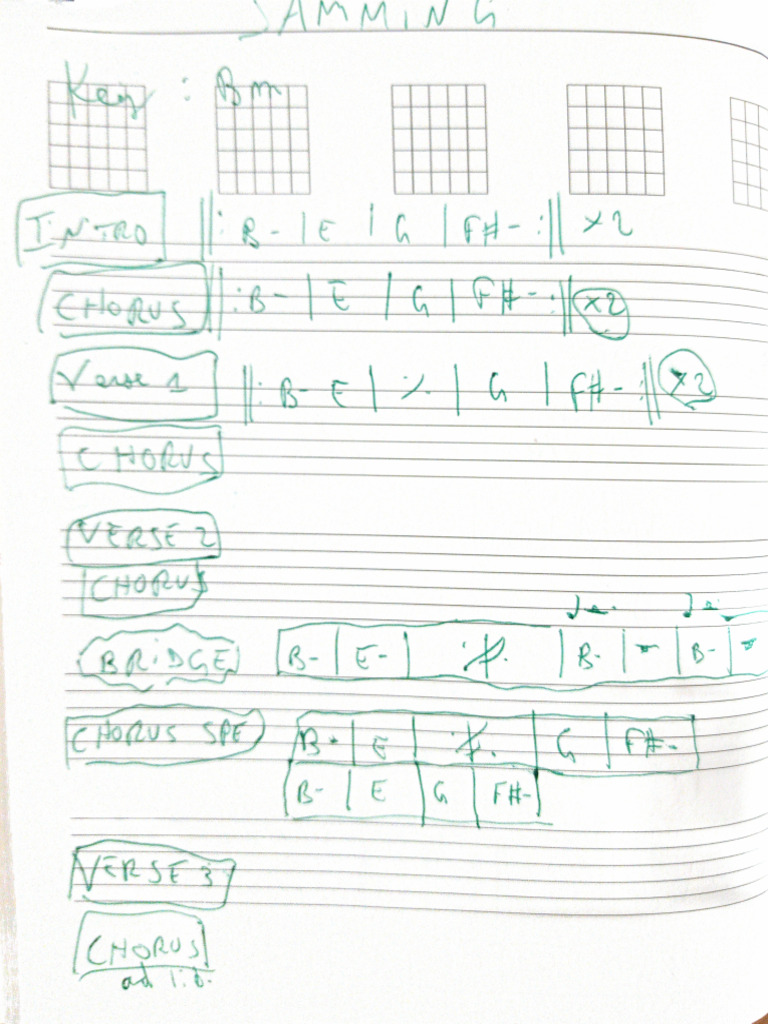 JAMMING
Key : Bm
INTRO ||: B- | E | G | F#- :|| x2
CHORUS ||: B- | E | G | F#- :|| x2
Verse 1 ||: B- E | ٪ | G | F#- :|| x2
CHORUS
VERSE 2
CHORUS
BRIDGE B- | E- | ٪ | B- | - | B- | -
CHORUS SPE B- | E | ٪ | G | F#-
B- | E | G | F#-
VERSE 3
CHORUS
ad lib.